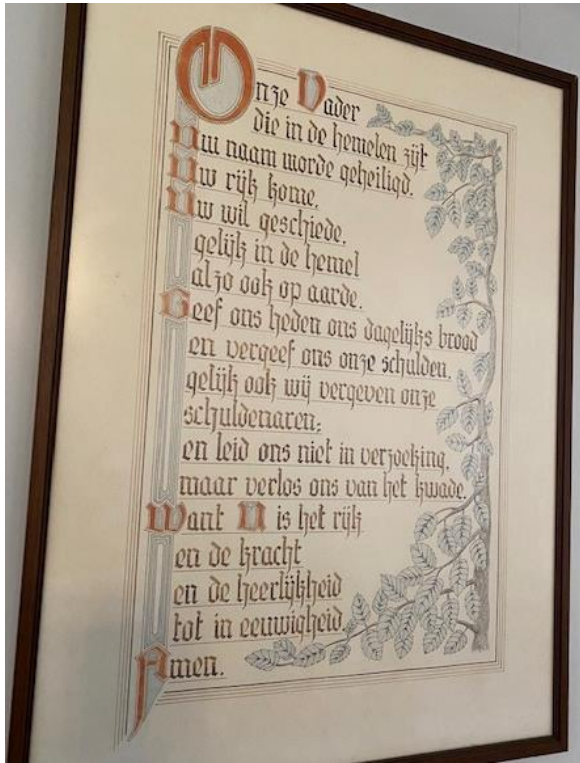 Onze Vader
die in de hemelen zijt
Uw naam worde geheiligd.
Uw rijk kome.
Uw wil geschiede.
gelijk in de hemel
alzo ook op aarde.
Geef ons heden ons dagelijks brood
en vergeef ons onze schulden.
gelijk ook wij vergeven onze
schuldenaren;
en leid ons niet in verzoeking.
maar verlos ons van het kwade.
Want U is het rijk
en de kracht
en de heerlijkheid
tot in eeuwigheid
Amen.